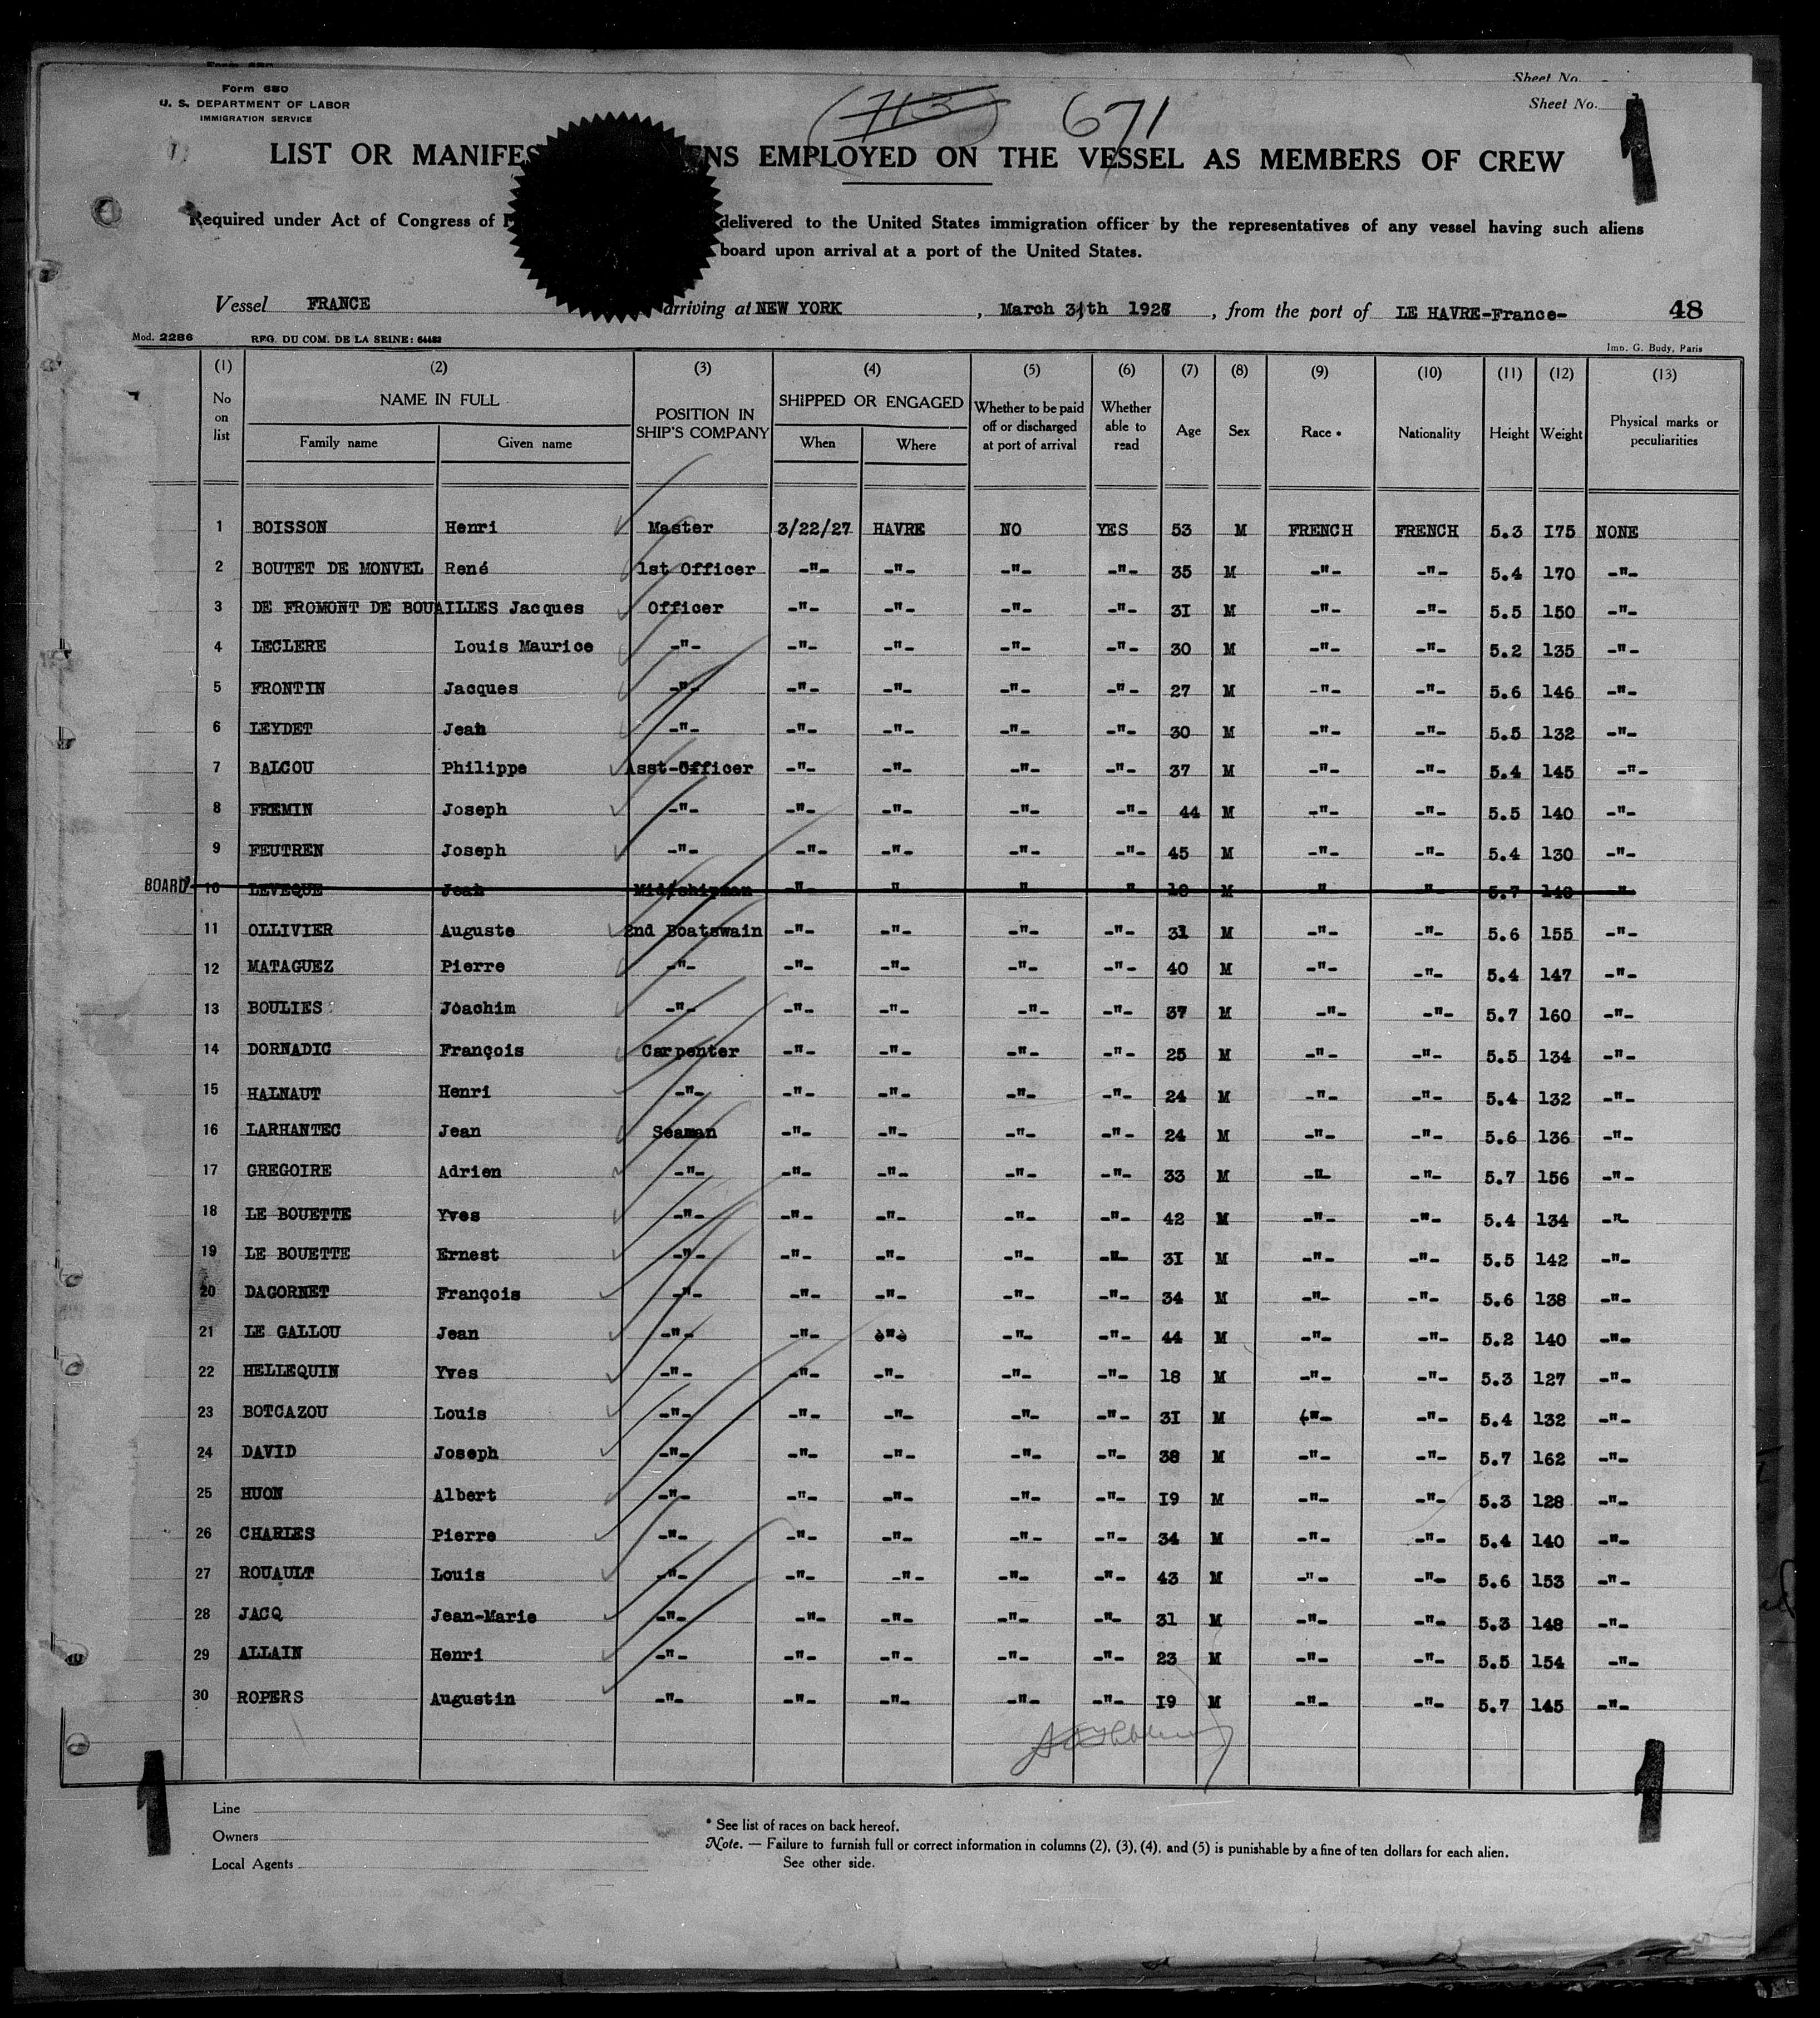 Sheet No.
Form 680
U. S. DEPARTMENT OF LABOR
IMMIGRATION SERVICE
Sheet No.
(713) 671
LIST OR MANIFES NS EMPLOYED ON THE VESSEL AS MEMBERS OF CREW
Required under Act of Congress of delivered to the United States immigration officer by the representatives of any vessel having such aliens
board upon arrival at a port of the United States.
Vessel FRANCE arriving at NEW YORK , March 31th 1927 , from the port of LE HAVRE-France- 48
Mod. 2286 RPG. DU COM. DE LA SEINE: 64483 Imp. G. Budy, Paris
(1) (2) (3) (4) (5) (6) (7) (8) (9) (10) (11) (12) (13)
No on list NAME IN FULL Family name Given name POSITION IN SHIP'S COMPANY SHIPPED OR ENGAGED When Where Whether to be paid off or discharged at port of arrival Whether able to read Age Sex Race * Nationality Height Weight Physical marks or peculiarities
1 BOISSON Henri Master 3/22/27 HAVRE NO YES 53 M FRENCH FRENCH 5.3 I75 NONE
2 BOUTET DE MONVEL René 1st Officer -"- -"- -"- -"- 35 M -"- -"- 5.4 170 -"-
3 DE FROMONT DE BOUAILLES Jacques Officer -"- -"- -"- -"- 3I M -"- -"- 5.5 150 -"-
4 LECLERE Louis Maurice -"- -"- -"- -"- -"- 30 M -"- -"- 5.2 135 -"-
5 FRONTIN Jacques -"- -"- -"- -"- -"- 27 M -"- -"- 5.6 146 -"-
6 LEYDET Jean -"- -"- -"- -"- -"- 30 M -"- -"- 5.5 132 -"-
7 BALCOU Philippe Asst-Officer -"- -"- -"- -"- 37 M -"- -"- 5.4 145 -"-
8 FREMIN Joseph -"- -"- -"- -"- -"- 44 M -"- -"- 5.5 140 -"-
9 FEUTREN Joseph -"- -"- -"- -"- -"- 45 M -"- -"- 5.4 130 -"-
BOARD 10 LEVEQUE Jean Mid/shipman -"- " " " 18 M " -"- 5.7 140 -"-
11 OLLIVIER Auguste 2nd Boatswain -"- -"- -"- -"- 31 M -"- -"- 5.6 155 -"-
12 MATAGUEZ Pierre -"- -"- -"- -"- -"- 40 M -"- -"- 5.4 147 -"-
13 BOULIES Joachim -"- -"- -"- -"- -"- 37 M -"- -"- 5.7 160 -"-
14 DORNADIC François Carpenter -"- -"- -"- -"- 25 M -"- -"- 5.5 134 -"-
15 HALNAUT Henri -"- -"- -"- -"- -"- 24 M -"- -"- 5.4 132 -"-
16 LARHANTEC Jean Seaman -"- -"- -"- -"- 24 M -"- -"- 5.6 136 -"-
17 GREGOIRE Adrien -"- -"- -"- -"- -"- 33 M -"- -"- 5.7 156 -"-
18 LE BOUETTE Yves -"- -"- -"- -"- -"- 42 M -"- -"- 5.4 134 -"-
19 LE BOUETTE Ernest -"- -"- -"- -"- -"- 3I M -"- -"- 5.5 142 -"-
20 DAGORNET François -"- -"- -"- -"- -"- 34 M -"- -"- 5.6 138 -"-
21 LE GALLOU Jean -"- -"- -"- -"- -"- 44 M -"- -"- 5.2 140 -"-
22 HELLEQUIN Yves -"- -"- -"- -"- -"- 18 M -"- -"- 5.3 127 -"-
23 BOTCAZOU Louis -"- -"- -"- -"- -"- 3I M -"- -"- 5.4 132 -"-
24 DAVID Joseph -"- -"- -"- -"- -"- 38 M -"- -"- 5.7 162 -"-
25 HUON Albert -"- -"- -"- -"- -"- I9 M -"- -"- 5.3 128 -"-
26 CHARLES Pierre -"- -"- -"- -"- -"- 34 M -"- -"- 5.4 140 -"-
27 ROUAULT Louis -"- -"- -"- -"- -"- 43 M -"- -"- 5.6 153 -"-
28 JACQ Jean-Marie -"- -"- -"- -"- -"- 31 M -"- -"- 5.3 148 -"-
29 ALLAIN Henri -"- -"- -"- -"- -"- 23 M -"- -"- 5.5 154 -"-
30 ROPERS Augustin -"- -"- -"- -"- -"- I9 M -"- -"- 5.7 145 -"-
Line
Owners
Local Agents
* See list of races on back hereof.
Note. — Failure to furnish full or correct information in columns (2), (3), (4), and (5) is punishable by a fine of ten dollars for each alien.
See other side.